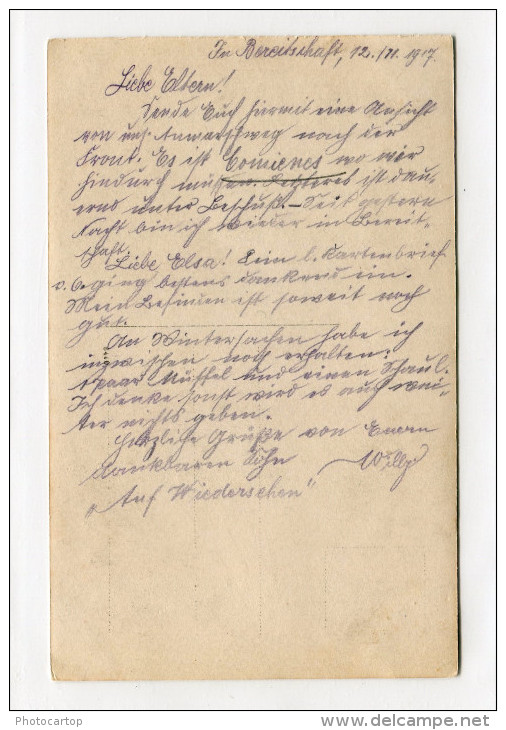 In Bereitschaft, 12./11. 1917.
Liebe Eltern!
Sende Euch hiermit eine Ansicht
von uns. Anmarschweg nach der
Front. Es ist Comienes wo wir
hindurch müssen. Letzteres ist dau-
ernd unter Beschuß. – Seit gestern
Nacht bin ich wieder in Bereit-
schaft.
Liebe Elsa! Dein l. Kartenbrief
v. 6. ging bestens dankend ein.
Mein Befinden ist soweit noch
gut.
An Wintersachen habe ich
inzwischen noch erhalten:
1 paar Müffel und einen Schaul.
Ich denke sonst wird es auch wei-
ter nichts geben.
Herzliche Grüße von Euern
dankbaren Sohn Willy
"Auf Wiedersehen"
Photocartop
www.delcampe.net